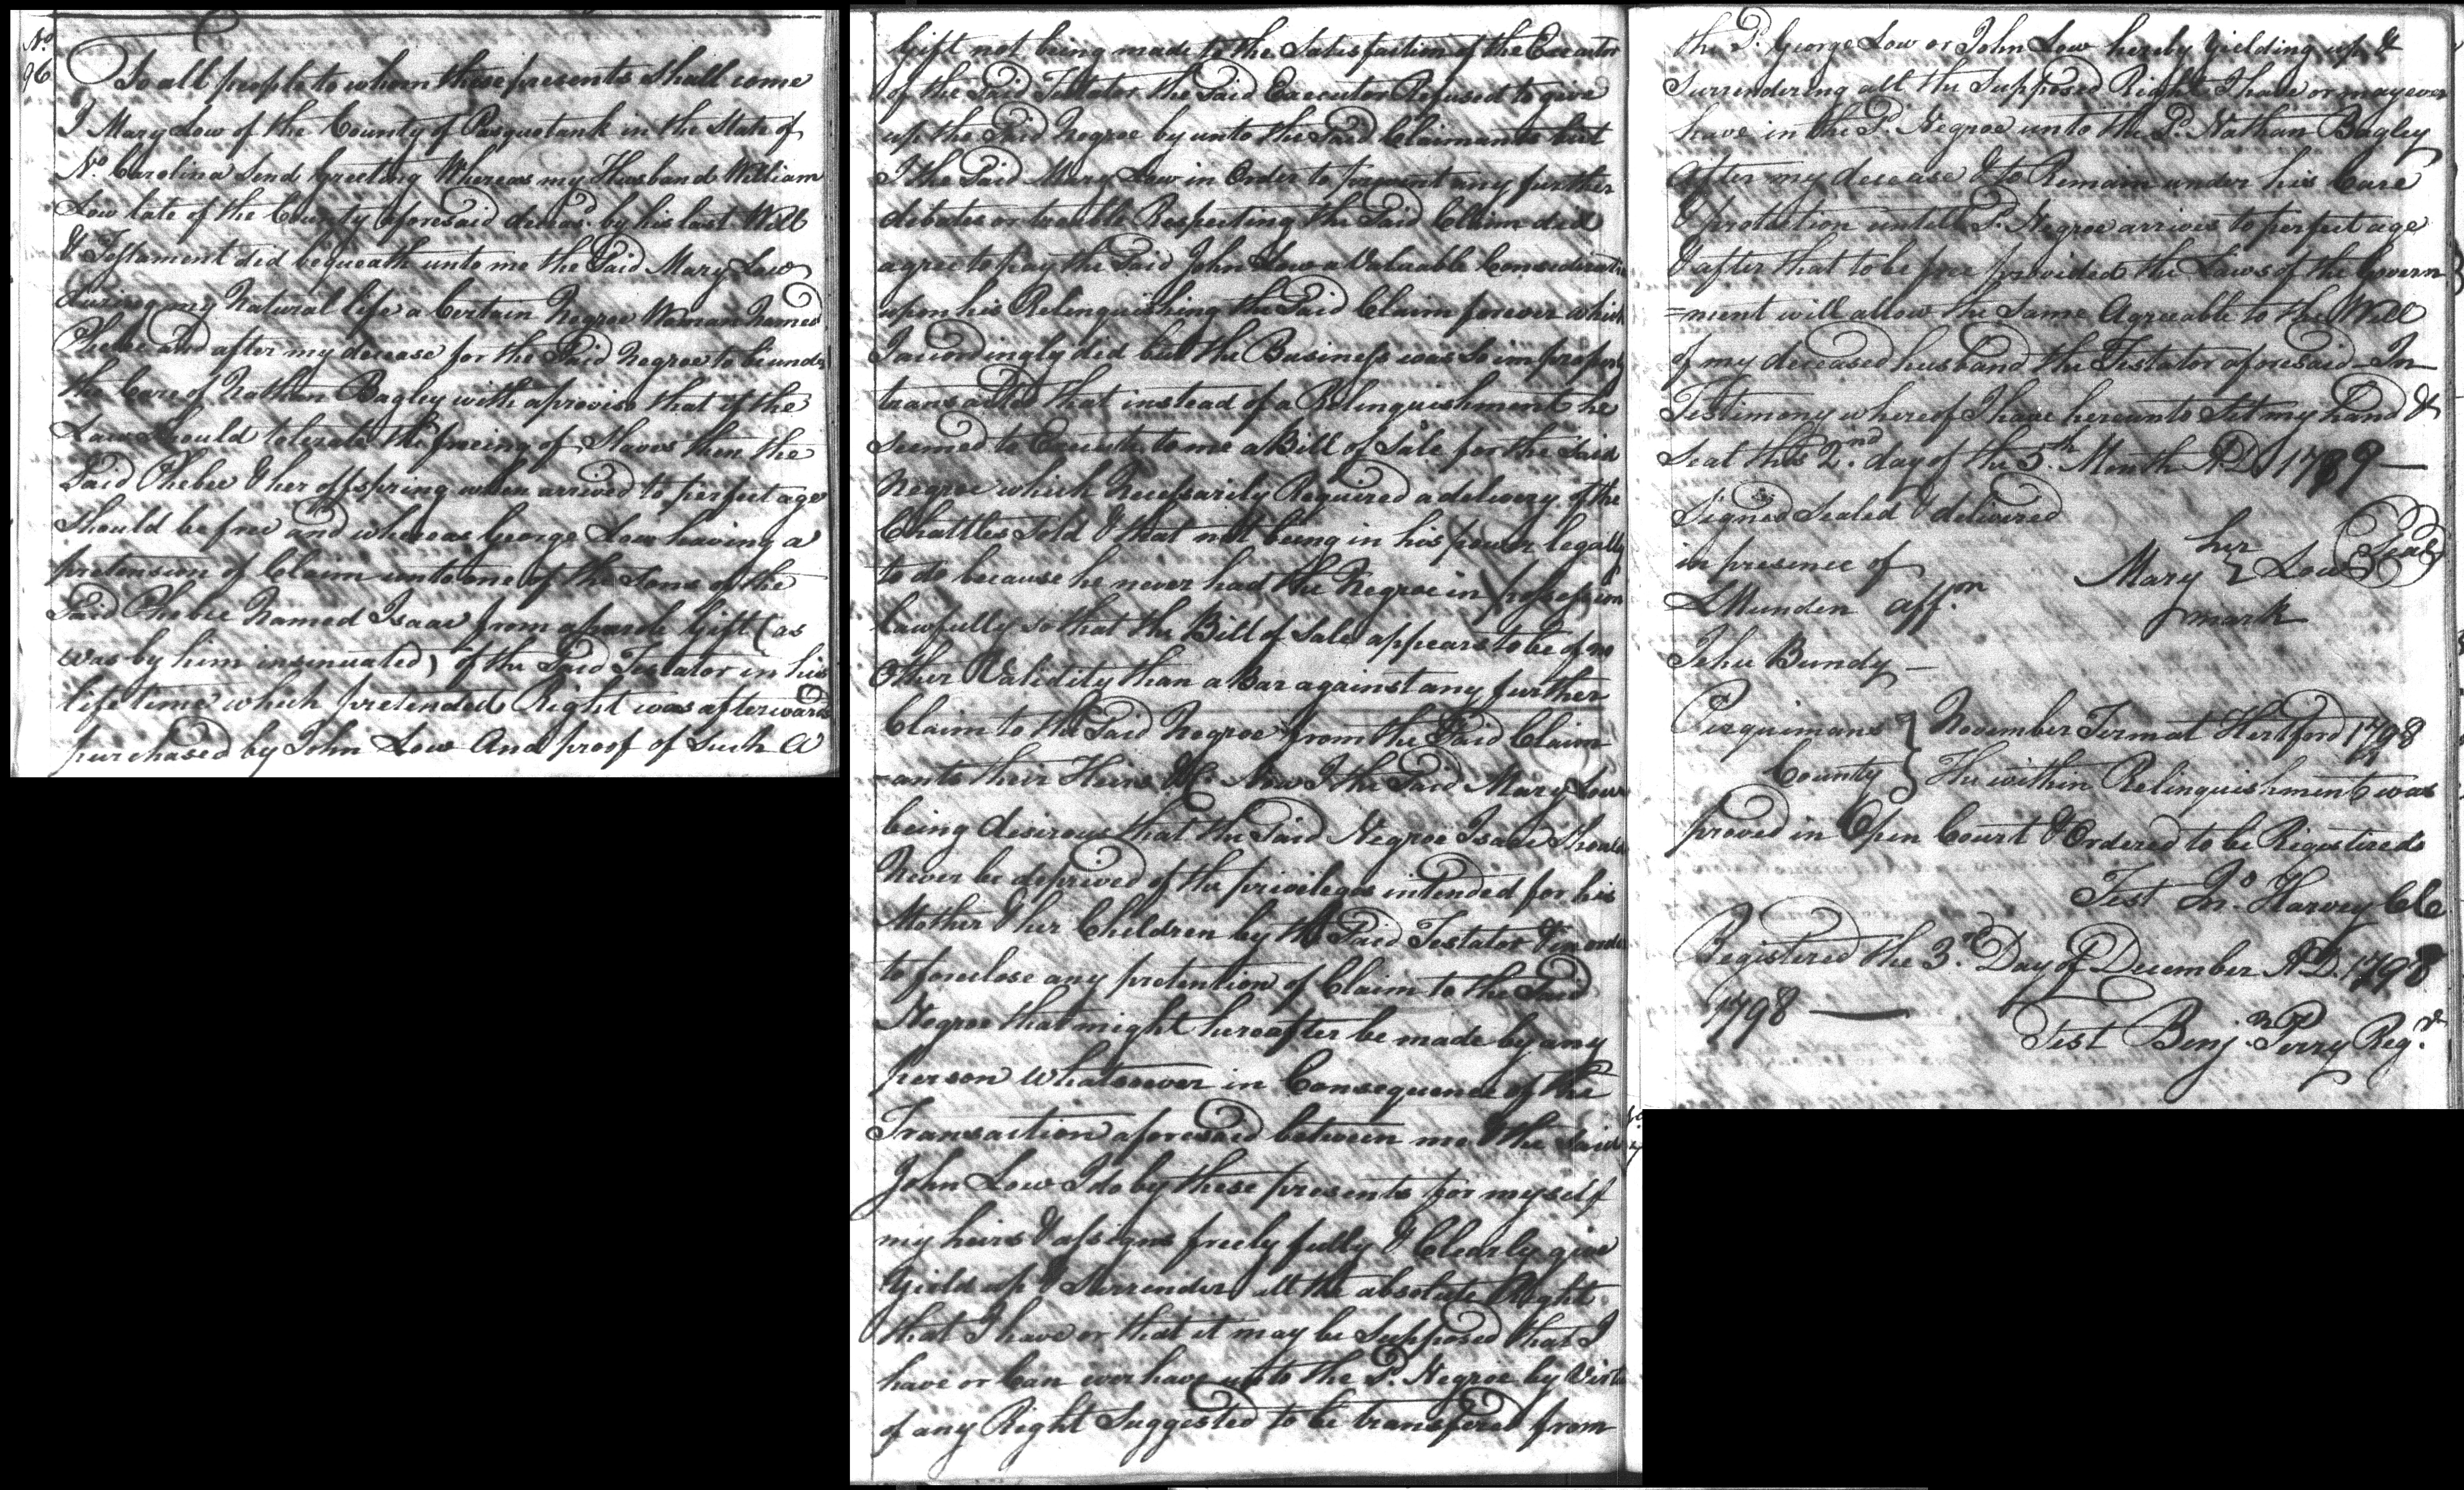 No.
96
To all people to whom these presents shall come
I Mary Low of the County of Pasquotank in the State of
No. Carolina Send Greeting Whereas my Husband William
Low late of the County aforesaid deceasd. by his last Will
& Testament did bequeath unto me the Said Mary Low
during my Natural life a Certain Negroe Woman Named
Phebe and after my decease for the Said Negroe to be under
the Care of Nathan Bagley with a proviso that if the
Law Should tolerate the freeing of Slaves then the
Said Phebee & her offspring when arrived to perfect age
Should be free and whereas George Low having a
pretension of Claim unto one of the Sons of the
Said Phebee Named Isaac from a parole Gift (as
was by him insinuated) of the Said Testator in his
life time which pretended Right was afterwards
purchased by John Low And proof of Such A
Gift not being made to the Satisfaction of the Executor
of the Said Testator the Said Executor Refused to give
up the Said Negroe by unto the Said Claimants but
I the Said Mary Low in Order to prevent any further
debates or trouble Respecting the Said Claim did
agree to pay the Said John Low a Valuable Consideration
upon his Relinquishing the Said Claim forever which
I accordingly did but the Business was So improperly
transacted that instead of a Relinquishment he
Seemed to Execute to me a Bill of Sale for the Said
Negroe which Necessarily Required a delivery of the
Chattles Sold & that not being in his power legally
to do because he never had the Negroe in possession
lawfully so that the Bill of Sale appears to be of no
Other Validity than a Bar against any further
Claim to the Said Negroe from the Said Claim
-ants their Heirs &c. Now I the Said Mary Low
being desirous that the Said Negroe Isaac Should
Never be deprived of the privileges intended for his
Mother & her Children by the Said Testator & in order
to foreclose any pretention of Claim to the Said
Negroe that might hereafter be made by any
person Whatsoever in Consequence of the
Transaction aforesaid between me & the Said
John Low I do by these presents for myself
my heirs & assigns freely fully & Clearly give
Yield up & Surrender all the absolute Right
that I have or that it may be Supposed that I
have or Can ever have unto the Sd. Negroe by Virtue
of any Right Suggested to be transfered from
the Sd. George Low or John Low hereby Yielding up &
Surrendering all the Supposed Right I have or may ever
have in the Sd. Negroe unto the Sd. Nathan Bagley
after my decease & to Remain under his Care
& protection untill Sd. Negroe arrives to perfect age
& after that to be free provided the Laws of the Govern
=ment will allow the Same Agreeable to the Will
of my deceased husband the Testator aforesaid In
Testimony whereof I have hereunto Set my hand &
Seal this 2nd. day of the 5th. Month A.D. 1789 —
Signed Sealed & delivered
in presence of
her
Mary } Low Seal
mark
L Munden affn.
Jehu Bundy —
Perquimans } November Term at Hertford 1798
County } The within Relinquishment was
proved in Open Court & Ordered to be Registered
Test Jno. Harvey Clk
Registered the 3rd. Day of December A.D. 1798
1798 —
Test Benj. Perry Regr.